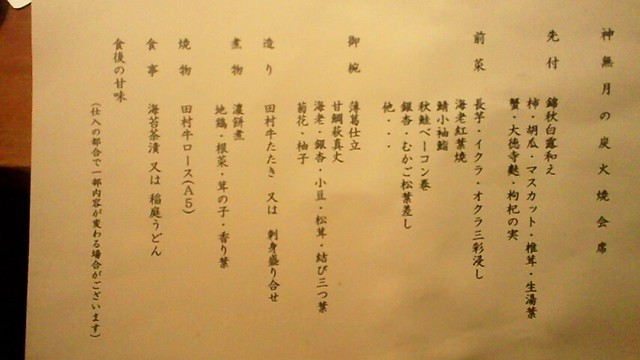 神無月の炭火焼会席
先付
錦秋白露和え
柿・胡瓜・マスカット・椎茸・生湯葉
蟹・大徳寺麩・枸杞の実
前菜
長芋・イクラ・オクラ三彩浸し
海老紅葉焼
鯖小袖鮨
秋鮭ベーコン巻
銀杏・むかご松葉差し
他・・・
御椀
薄葛仕立
甘鯛萩真丈
海老・銀杏・小豆・松茸・結び三つ葉
菊花・柚子
造り
田村牛たたき 又は 刺身盛り合せ
煮物
濃餅煮
地鶏・根菜・茸の子・香り葉
焼物
田村牛ロース(A5)
食事
海苔茶漬 又は 稲庭うどん
食後の甘味
(仕入の都合で一部内容が変わる場合がございます)